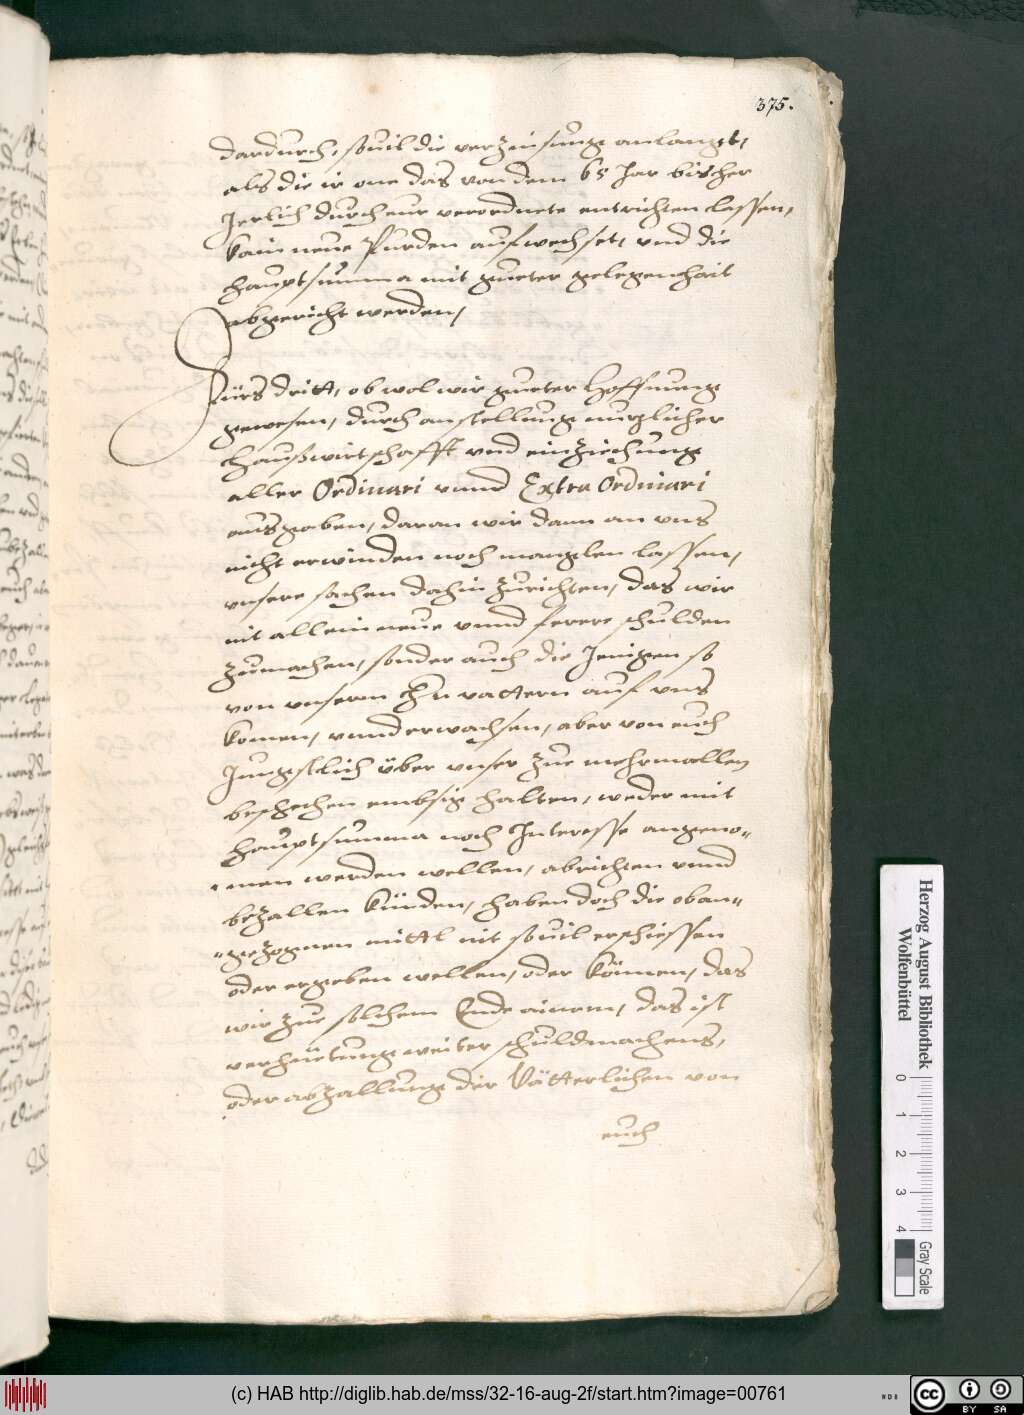 375.
dardurch, souil die verzinsung anlangt,
als die ir one das von dem 65 Jar bischer
Jerlich durch eur verordnete entrichten lassen,
kain neue Purden aufwechset, vnd die
hauptsumma mit gueter gelegenhait
abgericht werden,
Fürs dritt, ob wol wir gueter Hoffnung
gewesen, durch anstellung nuzlicher
Haußwirtschafft vnd einziechung
aller Ordinari vnnd Extra Ordinari
ausgaben, daran wir dann an vns
nicht erwinden noch manglen lassen,
vnsere sachen dahin zurichten, das wir
nit allein neue vnnd ferere schulden
zumachen, sonder auch die Jenigen so
von vnserm Hn vattern auf vns
komen, vnnd erwachsen, aber von euch
Jungstlich über vnser zue mehrmallen
beschechen embsig halten, weder mit
hauptsumma noch Interesse angeno-
men werden wellen, abrichten vnnd
bezallen künden, haben doch die oban-
gezognen mittl nit souil erschiessen
oder ergeben wellen, oder können, das
wir zue solchem Ende ainem, das ist
verhüetung weiter schuldmachens,
oder abzallung der Vätterlichen von
euch
Herzog August Bibliothek
Wolfenbüttel
0 1 2 3 4
Gray Scale
(c) HAB http://diglib.hab.de/mss/32-16-aug-2f/start.htm?image=00761
cc BY SA